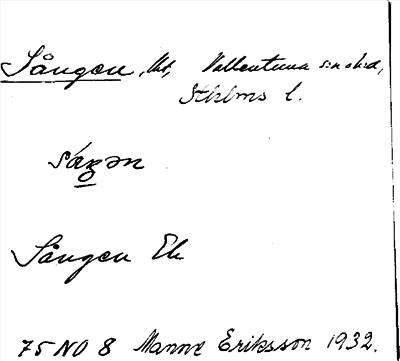 Sången, Vallentuna snokn,
Sthlms l.
Sången Ek
75 NO 8 Manne Eriksson 1932.